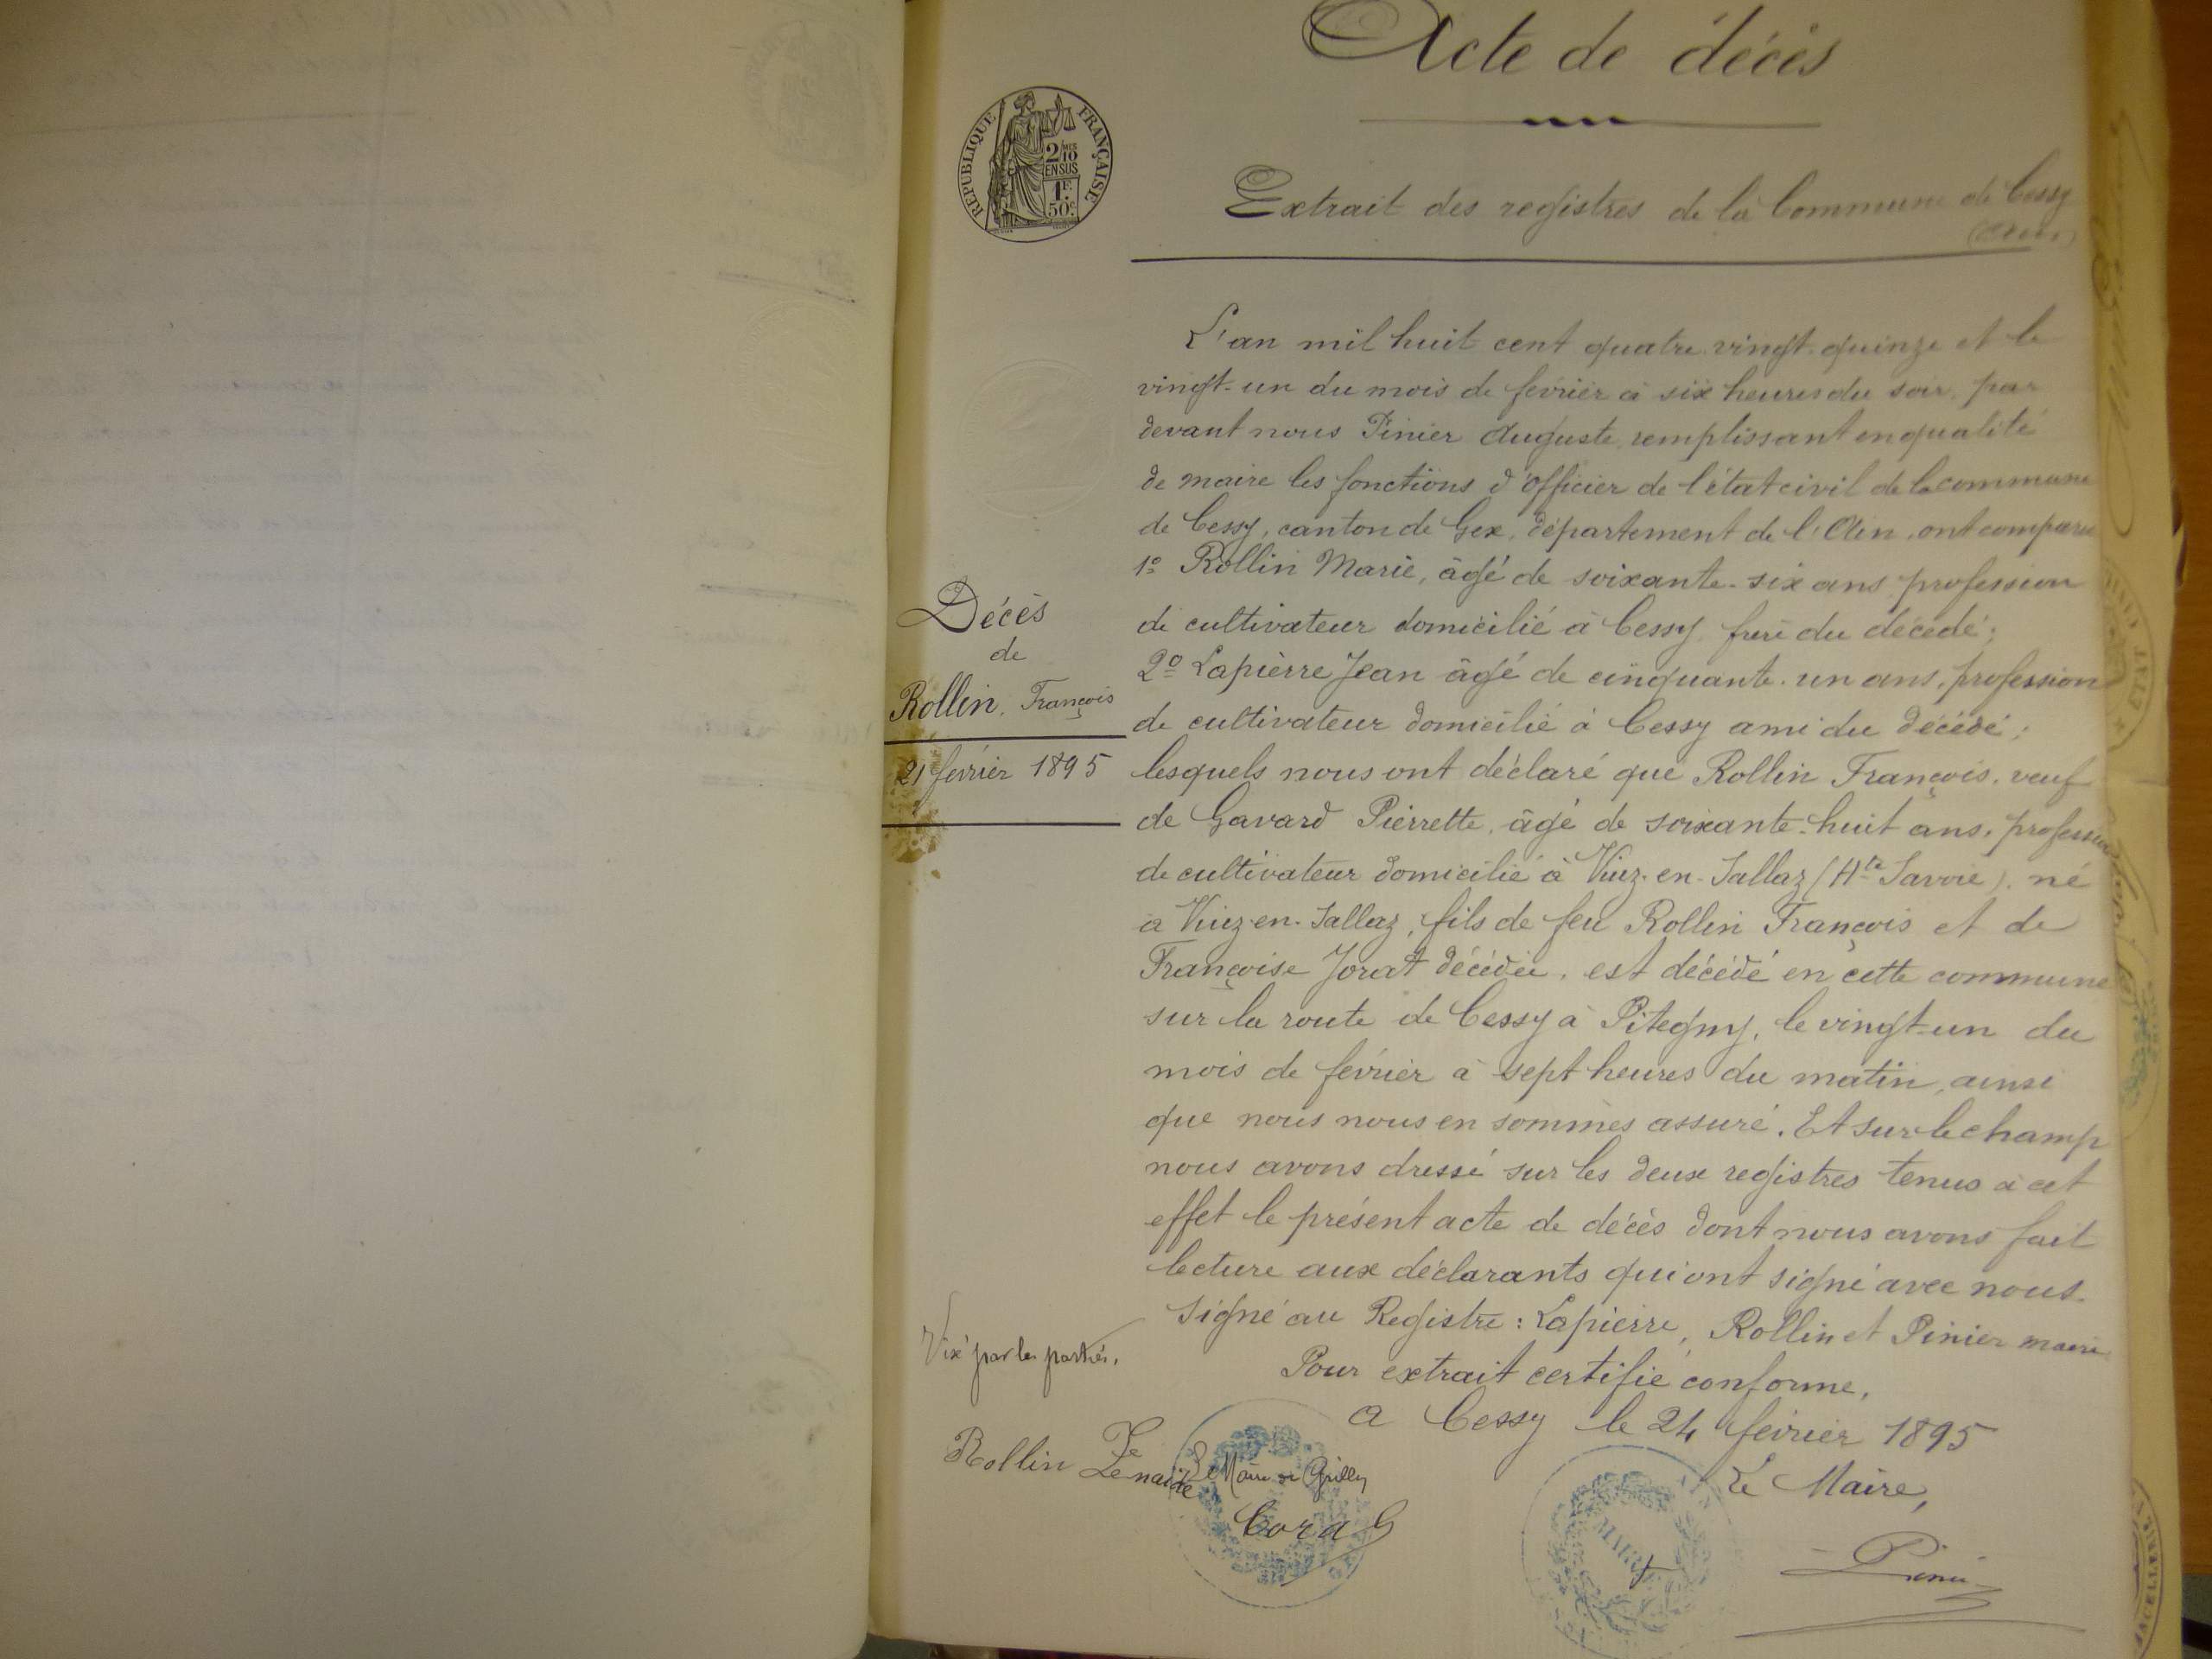 Acte de décès
RÉPUBLIQUE FRANÇAISE
2/10 MES
EN SUS
1F.
50c.
Extrait des registres de la Commune de Cessy
(Ain)
L'an mil huit cent quatre-vingt-quinze et le
vingt-un du mois de février à six heures du soir, par
devant nous Pinier Auguste, remplissant en qualité
de maire les fonctions d'officier de l'état civil de la commune
de Cessy, canton de Gex, département de l'Ain, ont comparu
1º Rollin Marie, âgé de soixante-six ans profession
de cultivateur domicilié à Cessy, frère du décédé;
2º Lapierre Jean âgé de cinquante-un ans, profession
de cultivateur domicilié à Cessy ami du décédé;
lesquels nous ont déclaré que Rollin François, veuf
de Gavard Pierrette, âgé de soixante-huit ans, profession
de cultivateur domicilié à Viuz-en-Sallaz (Hte Savoie), né
à Viuz-en-Sallaz, fils de feu Rollin François et de
Françoise Jorat décédée, est décédé en cette commune
sur la route de Cessy à Pitegny, le vingt-un du
mois de février à sept heures du matin, ainsi
que nous nous en sommes assuré. Et sur le champ
nous avons dressé sur les deux registres tenus à cet
effet le présent acte de décès dont nous avons fait
lecture aux déclarants qui ont signé avec nous.
Signé au Registre: Lapierre, Rollin et Pinier maire
Pour extrait certifié conforme,
A Cessy le 24 février 1895
Le Maire,
Pinier
Décès
de
Rollin, François
21 février 1895
par les parties.
Rollin Zenaïde
Le Maire de Grilly
MAIRIE